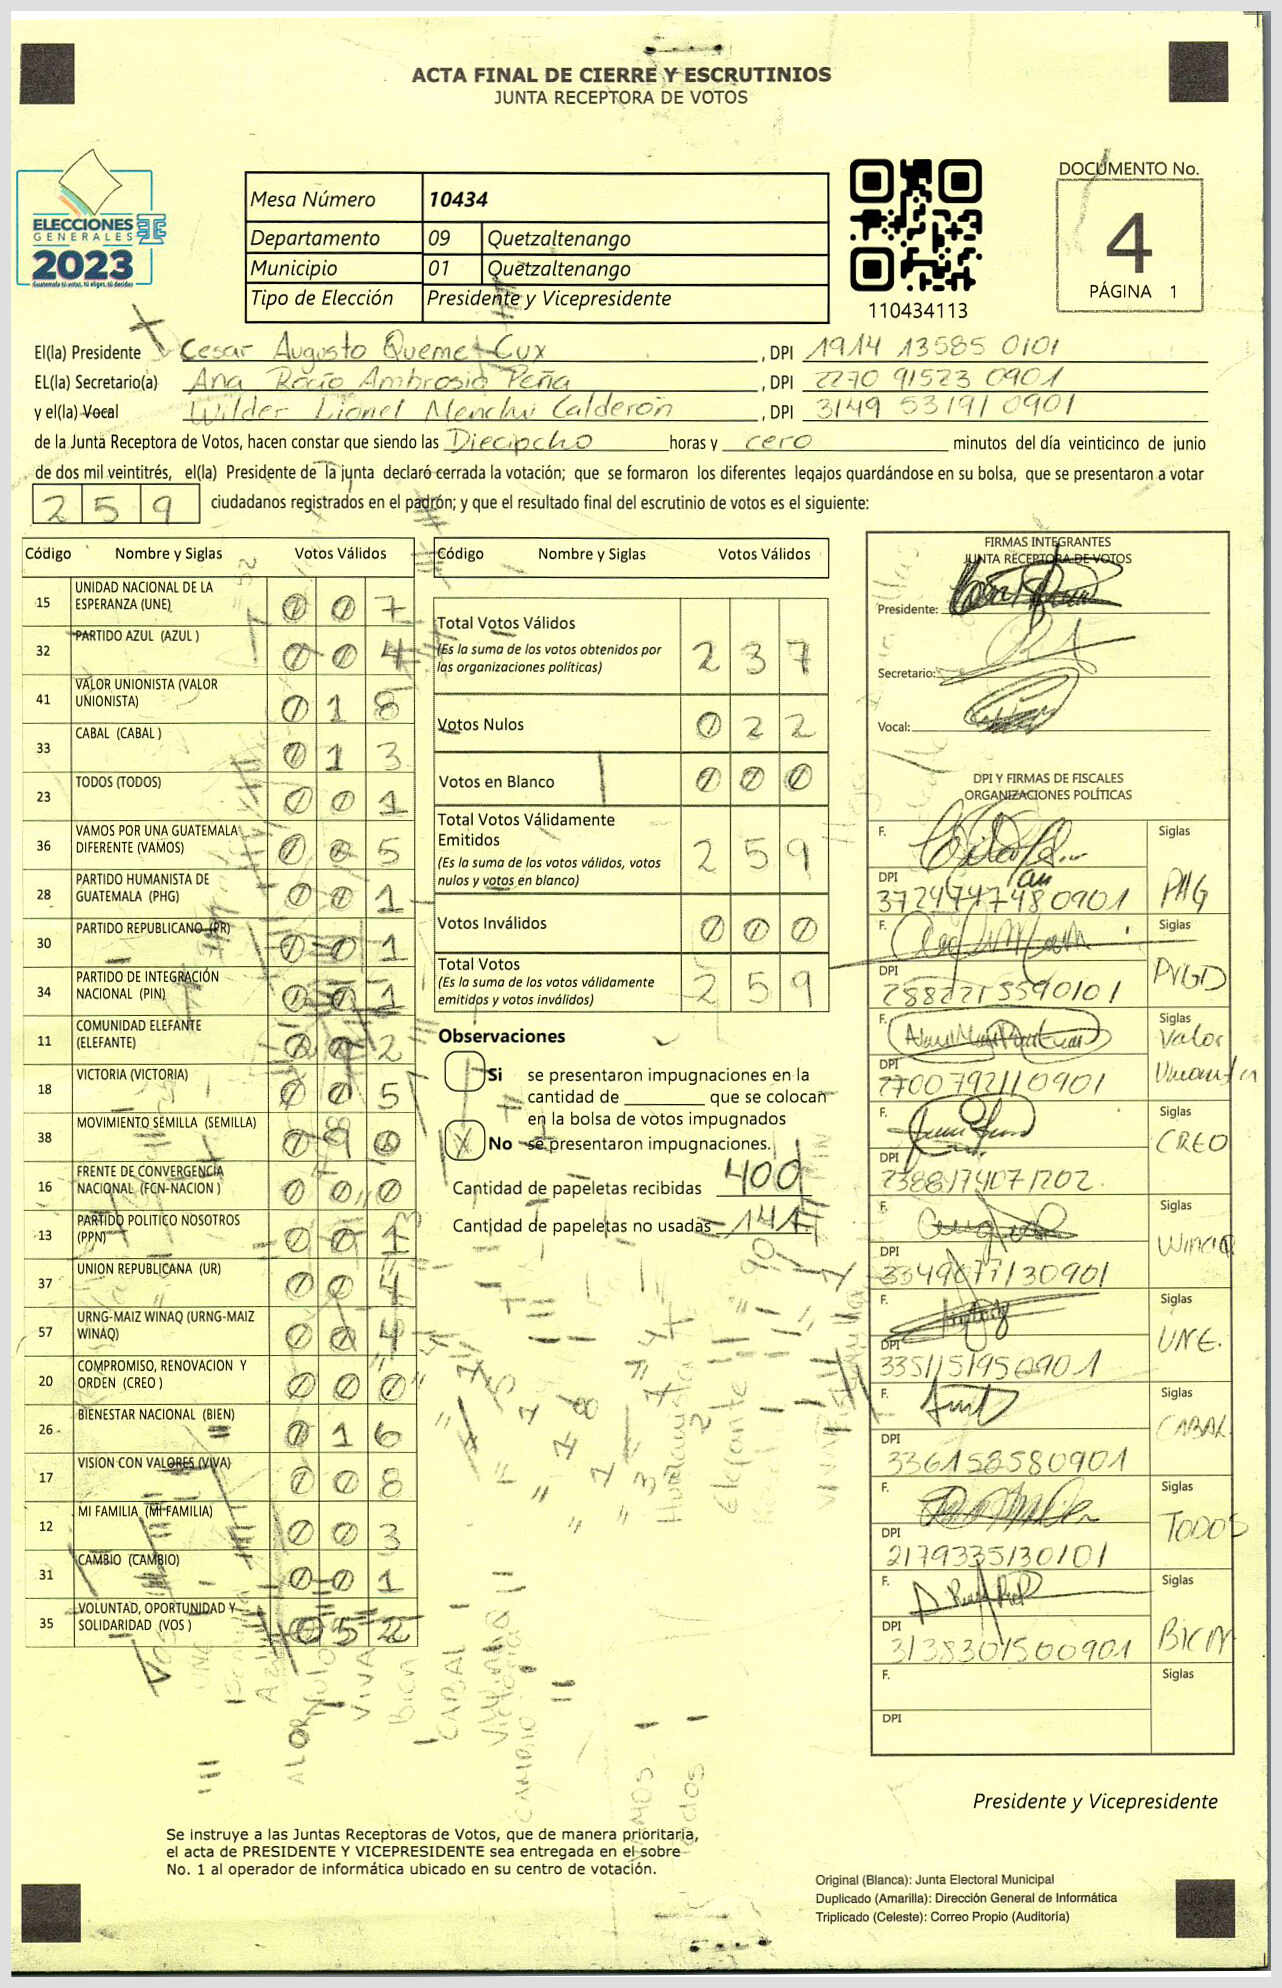 ACTA FINAL DE CIERRE Y ESCRUTINIOS
JUNTA RECEPTORA DE VOTOS
ELECCIONES
GENERALES
2023
Guatemala tú votas, tú eliges, tú decides
Mesa Número 10434
Departamento 09 Quetzaltenango
Municipio 01 Quetzaltenango
Tipo de Elección Presidente y Vicepresidente
110434113
DOCUMENTO No.
4
PÁGINA 1
El(la) Presidente Cesar Augusto Queme Cux , DPI 1914 13585 0101
EL(la) Secretario(a) Ana Rocío Ambrosio Peña , DPI 2270 91523 0901
y el(la) Vocal Wilder Lionel Menchu Calderón , DPI 3149 53191 0901
de la Junta Receptora de Votos, hacen constar que siendo las Dieciocho horas y cero minutos del día veinticinco de junio
de dos mil veintitrés, el(la) Presidente de la junta declaró cerrada la votación; que se formaron los diferentes legajos guardándose en su bolsa, que se presentaron a votar
259 ciudadanos registrados en el padrón; y que el resultado final del escrutinio de votos es el siguiente:
Código Nombre y Siglas Votos Válidos
15 UNIDAD NACIONAL DE LA ESPERANZA (UNE) 0 0 7
32 PARTIDO AZUL (AZUL ) 0 0 4
41 VALOR UNIONISTA (VALOR UNIONISTA) 0 1 8
33 CABAL (CABAL ) 0 1 3
23 TODOS (TODOS) 0 0 1
36 VAMOS POR UNA GUATEMALA DIFERENTE (VAMOS) 0 0 5
28 PARTIDO HUMANISTA DE GUATEMALA (PHG) 0 0 1
30 PARTIDO REPUBLICANO (PR) 0 0 1
34 PARTIDO DE INTEGRACIÓN NACIONAL (PIN) 0 0 1
11 COMUNIDAD ELEFANTE (ELEFANTE) 0 0 2
18 VICTORIA (VICTORIA) 0 0 5
38 MOVIMIENTO SEMILLA (SEMILLA) 0 9 0
16 FRENTE DE CONVERGENCIA NACIONAL (FCN-NACION ) 0 0 0
13 PARTIDO POLITICO NOSOTROS (PPN) 0 0 1
37 UNION REPUBLICANA (UR) 0 0 4
57 URNG-MAIZ WINAQ (URNG-MAIZ WINAQ) 0 0 4
20 COMPROMISO, RENOVACION Y ORDEN (CREO ) 0 0 0
26 BIENESTAR NACIONAL (BIEN) 0 1 6
17 VISION CON VALORES (VIVA) 0 0 8
12 MI FAMILIA (MI FAMILIA) 0 0 3
31 CAMBIO (CAMBIO) 0 0 1
35 VOLUNTAD, OPORTUNIDAD Y SOLIDARIDAD (VOS ) 0 5 2
Código Nombre y Siglas Votos Válidos
Total Votos Válidos 2 3 7
(Es la suma de los votos obtenidos por
las organizaciones políticas)
Votos Nulos 0 2 2
Votos en Blanco 0 0 0
Total Votos Válidamente
Emitidos 2 5 9
(Es la suma de los votos válidos, votos
nulos y votos en blanco)
Votos Inválidos 0 0 0
Total Votos 2 5 9
(Es la suma de los votos válidamente
emitidos y votos inválidos)
Observaciones
Si se presentaron impugnaciones en la
cantidad de ________ que se colocan
en la bolsa de votos impugnados
X No se presentaron impugnaciones.
Cantidad de papeletas recibidas 400
Cantidad de papeletas no usadas 141
FIRMAS INTEGRANTES
JUNTA RECEPTORA DE VOTOS
Presidente:
Secretario:
Vocal:
DPI Y FIRMAS DE FISCALES
ORGANIZACIONES POLÍTICAS
F. Siglas
DPI PHG
F. Siglas
DPI 2882215590101
F. Siglas
Valor
DPI 2700792110901
F. Siglas
CREO
DPI 2388174071202
F. Siglas
DPI 3349077130901
F. Siglas
UNE.
DPI 3351151950901
F. Siglas
CABAL
DPI 336158580901
F. Siglas
TODOS
DPI 2179335130101
F. Siglas
BIEN
DPI 3138301500901
F. Siglas
DPI
Elefante
VIVA
Bien
CABAL
CAMBIO
Presidente y Vicepresidente
Se instruye a las Juntas Receptoras de Votos, que de manera prioritaria,
el acta de PRESIDENTE Y VICEPRESIDENTE sea entregada en el sobre
No. 1 al operador de informática ubicado en su centro de votación.
Original (Blanca): Junta Electoral Municipal
Duplicado (Amarilla): Dirección General de Informática
Triplicado (Celeste): Correo Propio (Auditoría)